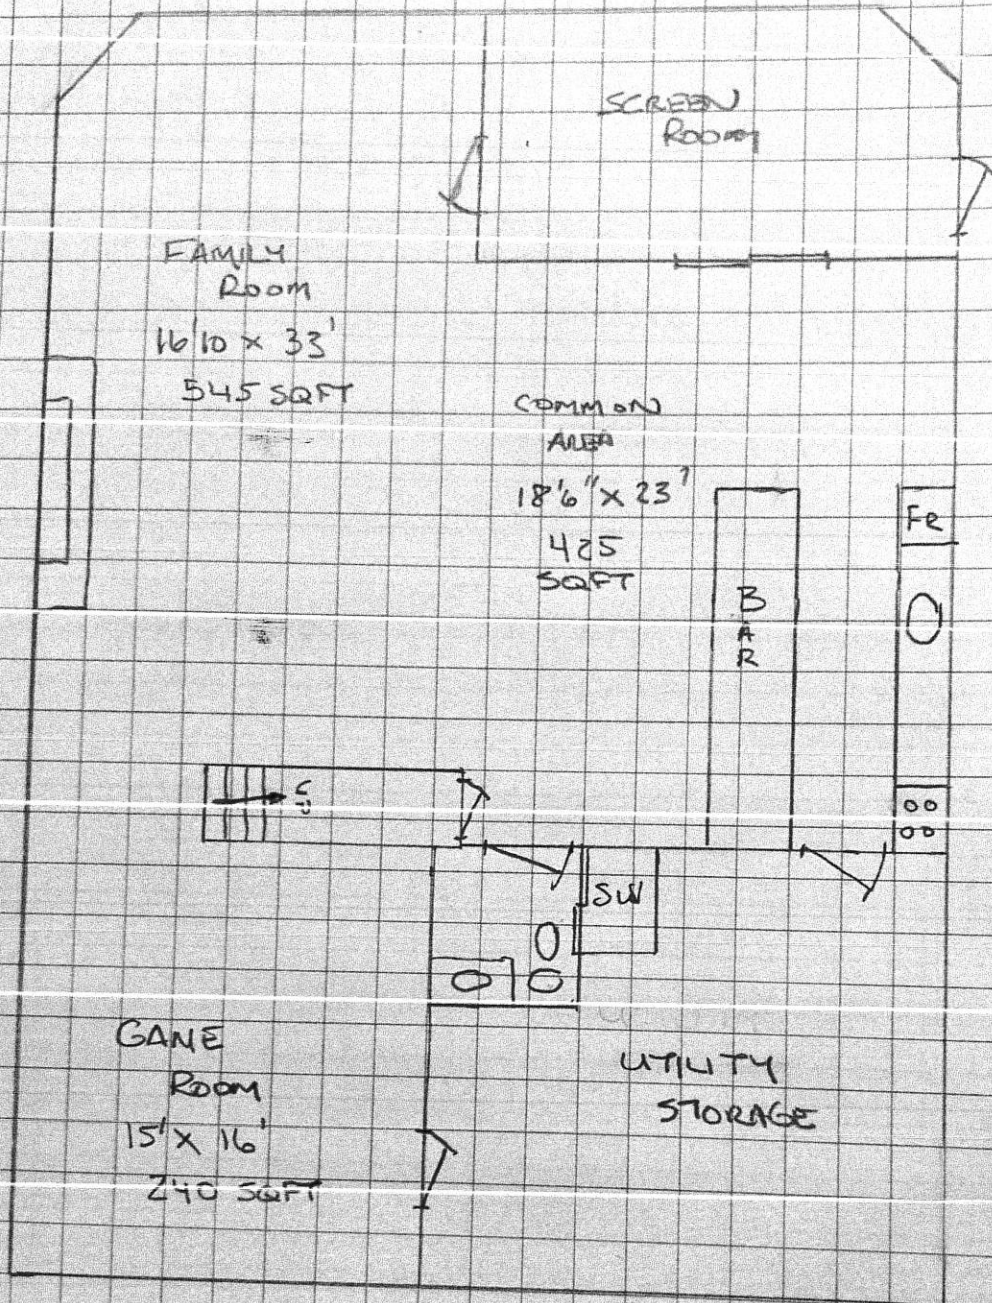 SCREEN
ROOM
FAMILY
ROOM
16'10 x 33'
545 SQFT
COMMON
AREA
18'6" x 23'
425
SQFT
BAR
FR
UP
SW
GAME
ROOM
15' x 16'
240 SQFT
UTILITY
STORAGE